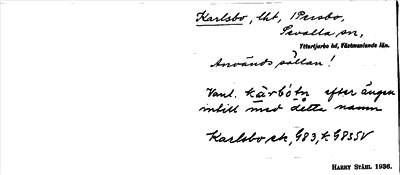 Karlsbo, lht, 1 Persbo,
Sevalla sn,
Yttertjurbo hd, Västmanlands län.
Används sällan!
Vanl. kärbótn efter ängen
intill med detta namn
Karlsbo ek, G83, k G83SV
HARRY STÅHL 1936.